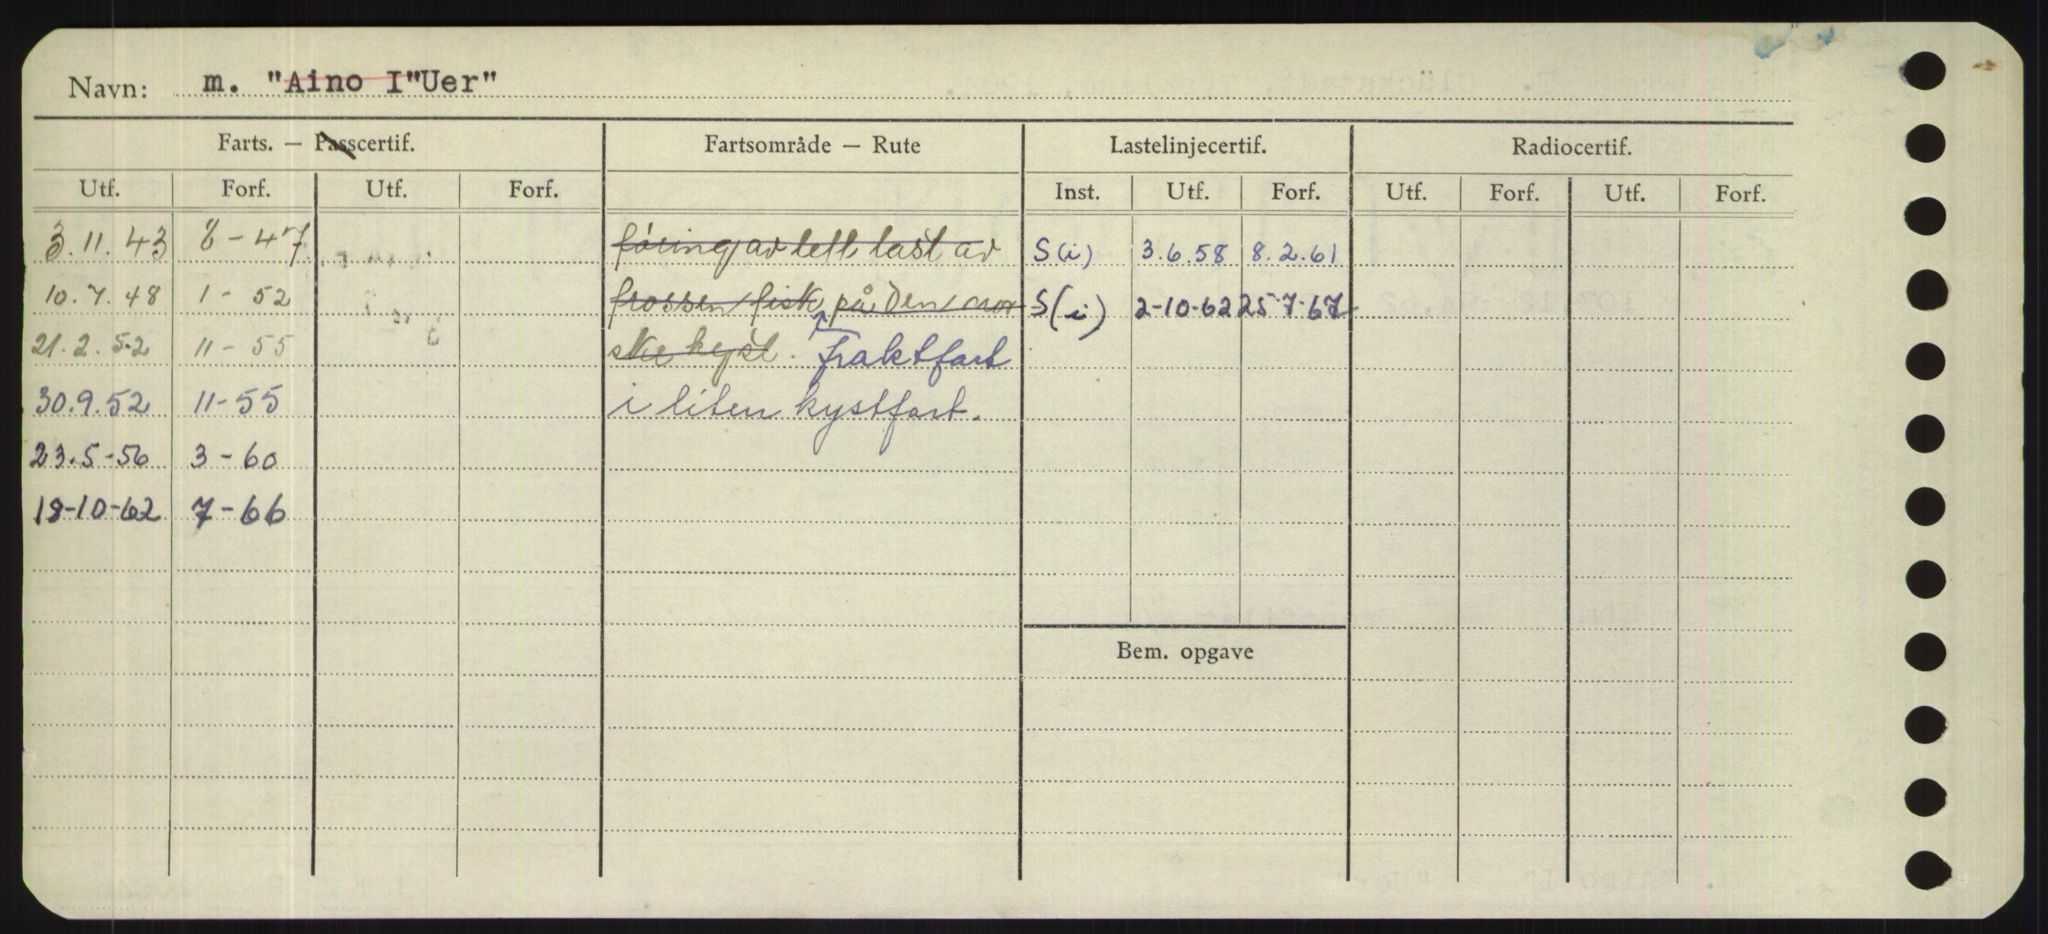 Navn: m. "Aino I" Uer"
Farts. — Passcertif. Fartsområde — Rute Lastelinjecertif. Radiocertif.
Utf. Forf. Utf. Forf. Inst. Utf. Forf. Utf. Forf. Utf. Forf.
3.11.43 8-47 føring av lett last av S(i) 3.6.58 8.2.61
10.7.48 1-52 frossen fisk på den nor S(i) 2-10-62 25-7-67
21.2.52 11-55 ske kyst. Fraktfart
30.9.52 11-55 i liten kystfart.
23.5-56 3-60
18-10-62 7-66
Bem. opgave